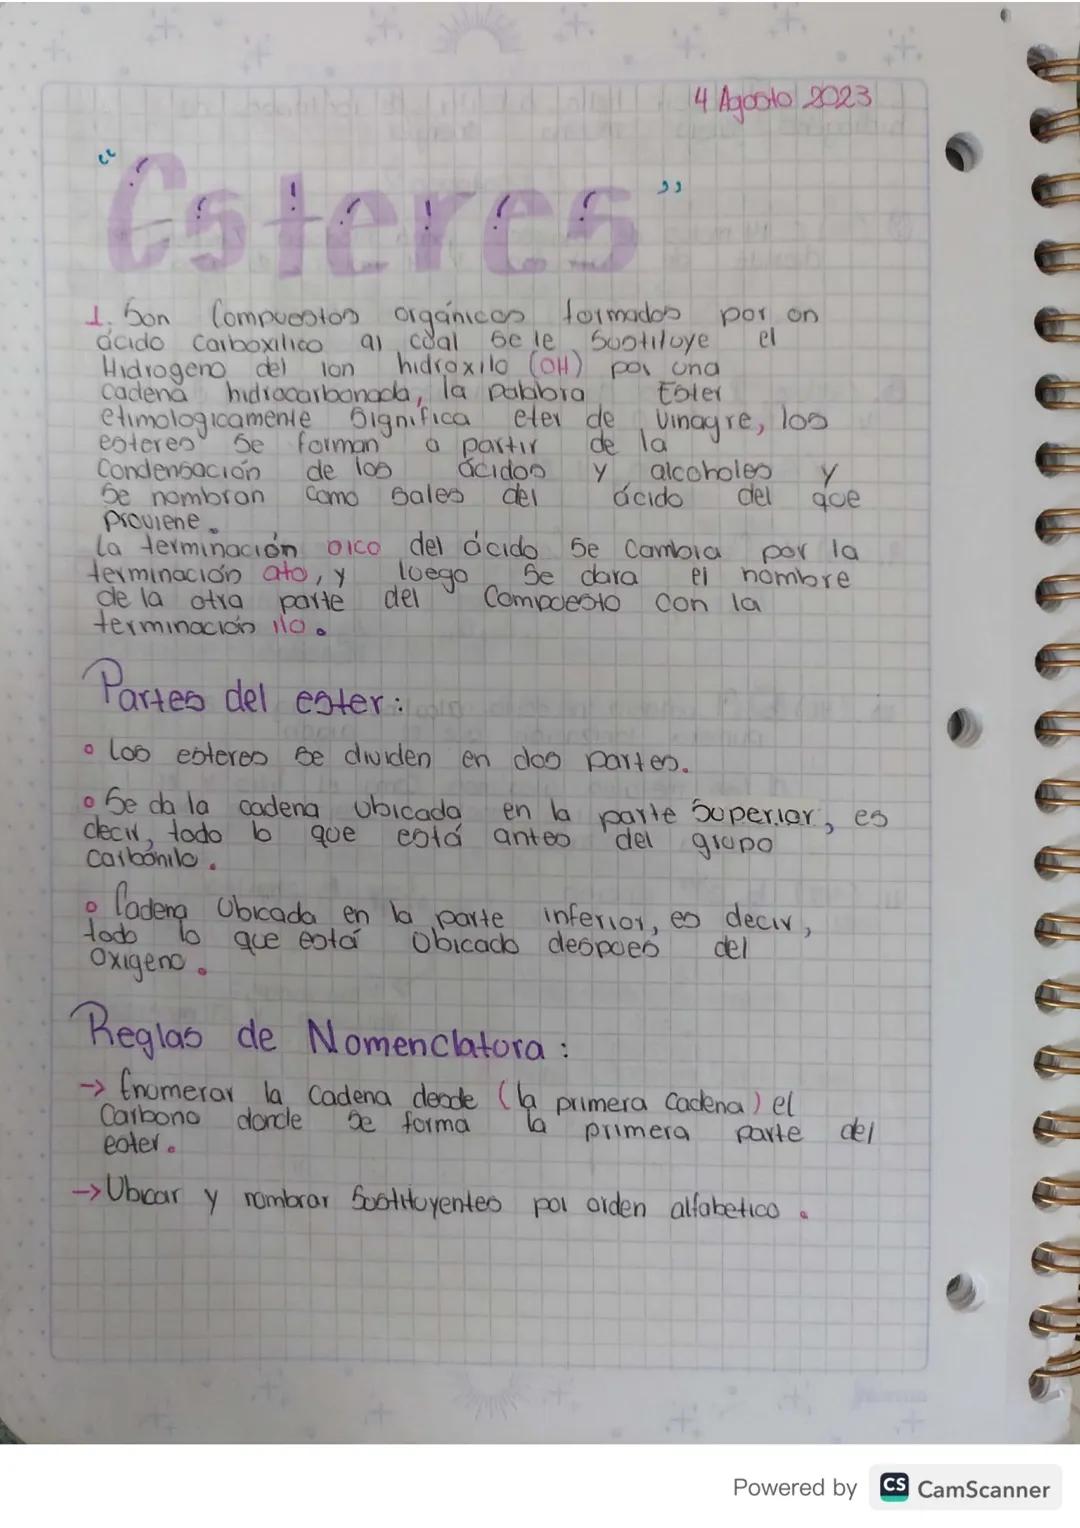 4 Agosto 2023
“Esteres”
1. Son Compuestos orgánicos formados por un
ácido Carboxilico al cual se le Sustituye el
Hidrogeno del ion hidroxilo (OH) por una
cadena hidrocarbonada, la palabra Ester
etimologicamente Significa eter de Vinagre, los
esteres Se forman a partir de la
Condensación de los ácidos y alcoholes y
Se nombran Como Sales del ácido del que
proviene.
La terminación oico del ácido Se Cambia por la
terminación ato, y luego Se dara el nombre
de la otra parte del Compuesto con la
terminación ilo.
Partes del ester:
• Los esteres Se dividen en dos partes.
• Se da la cadena Ubicada en la parte Superior, es
decir, todo lo que está antes del grupo
Carbónilo.
• Cadena Ubicada en la parte inferior, es decir,
todo lo que está Ubicado despues del
Oxigeno.
Reglas de Nomenclatura:
-> Enumerar la Cadena desde (la primera Cadena) el
Carbono donde Se forma la primera parte del
ester.
-> Ubicar y nombrar Sustituyentes por orden alfabetico.
Powered by CS CamScanner